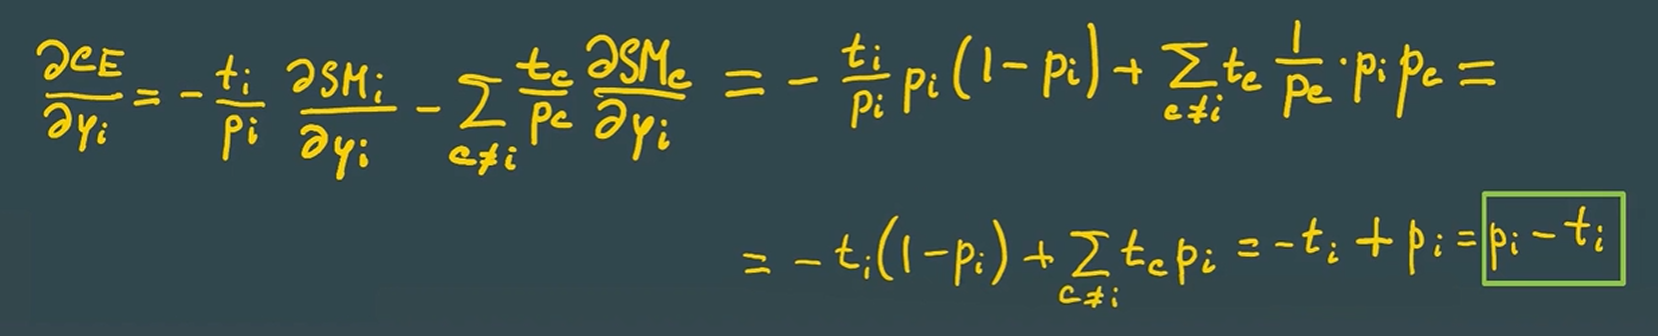 ∂CE/∂yᵢ = - tᵢ/pᵢ ∂SMᵢ/∂yᵢ - ∑_{c≠i} t_c/p_c ∂SM_c/∂yᵢ = - tᵢ/pᵢ pᵢ(1-pᵢ) + ∑_{c≠i} t_c 1/p_c · pᵢ p_c =
= - tᵢ(1-pᵢ) + ∑_{c≠i} t_c pᵢ = - tᵢ + pᵢ = pᵢ - tᵢ